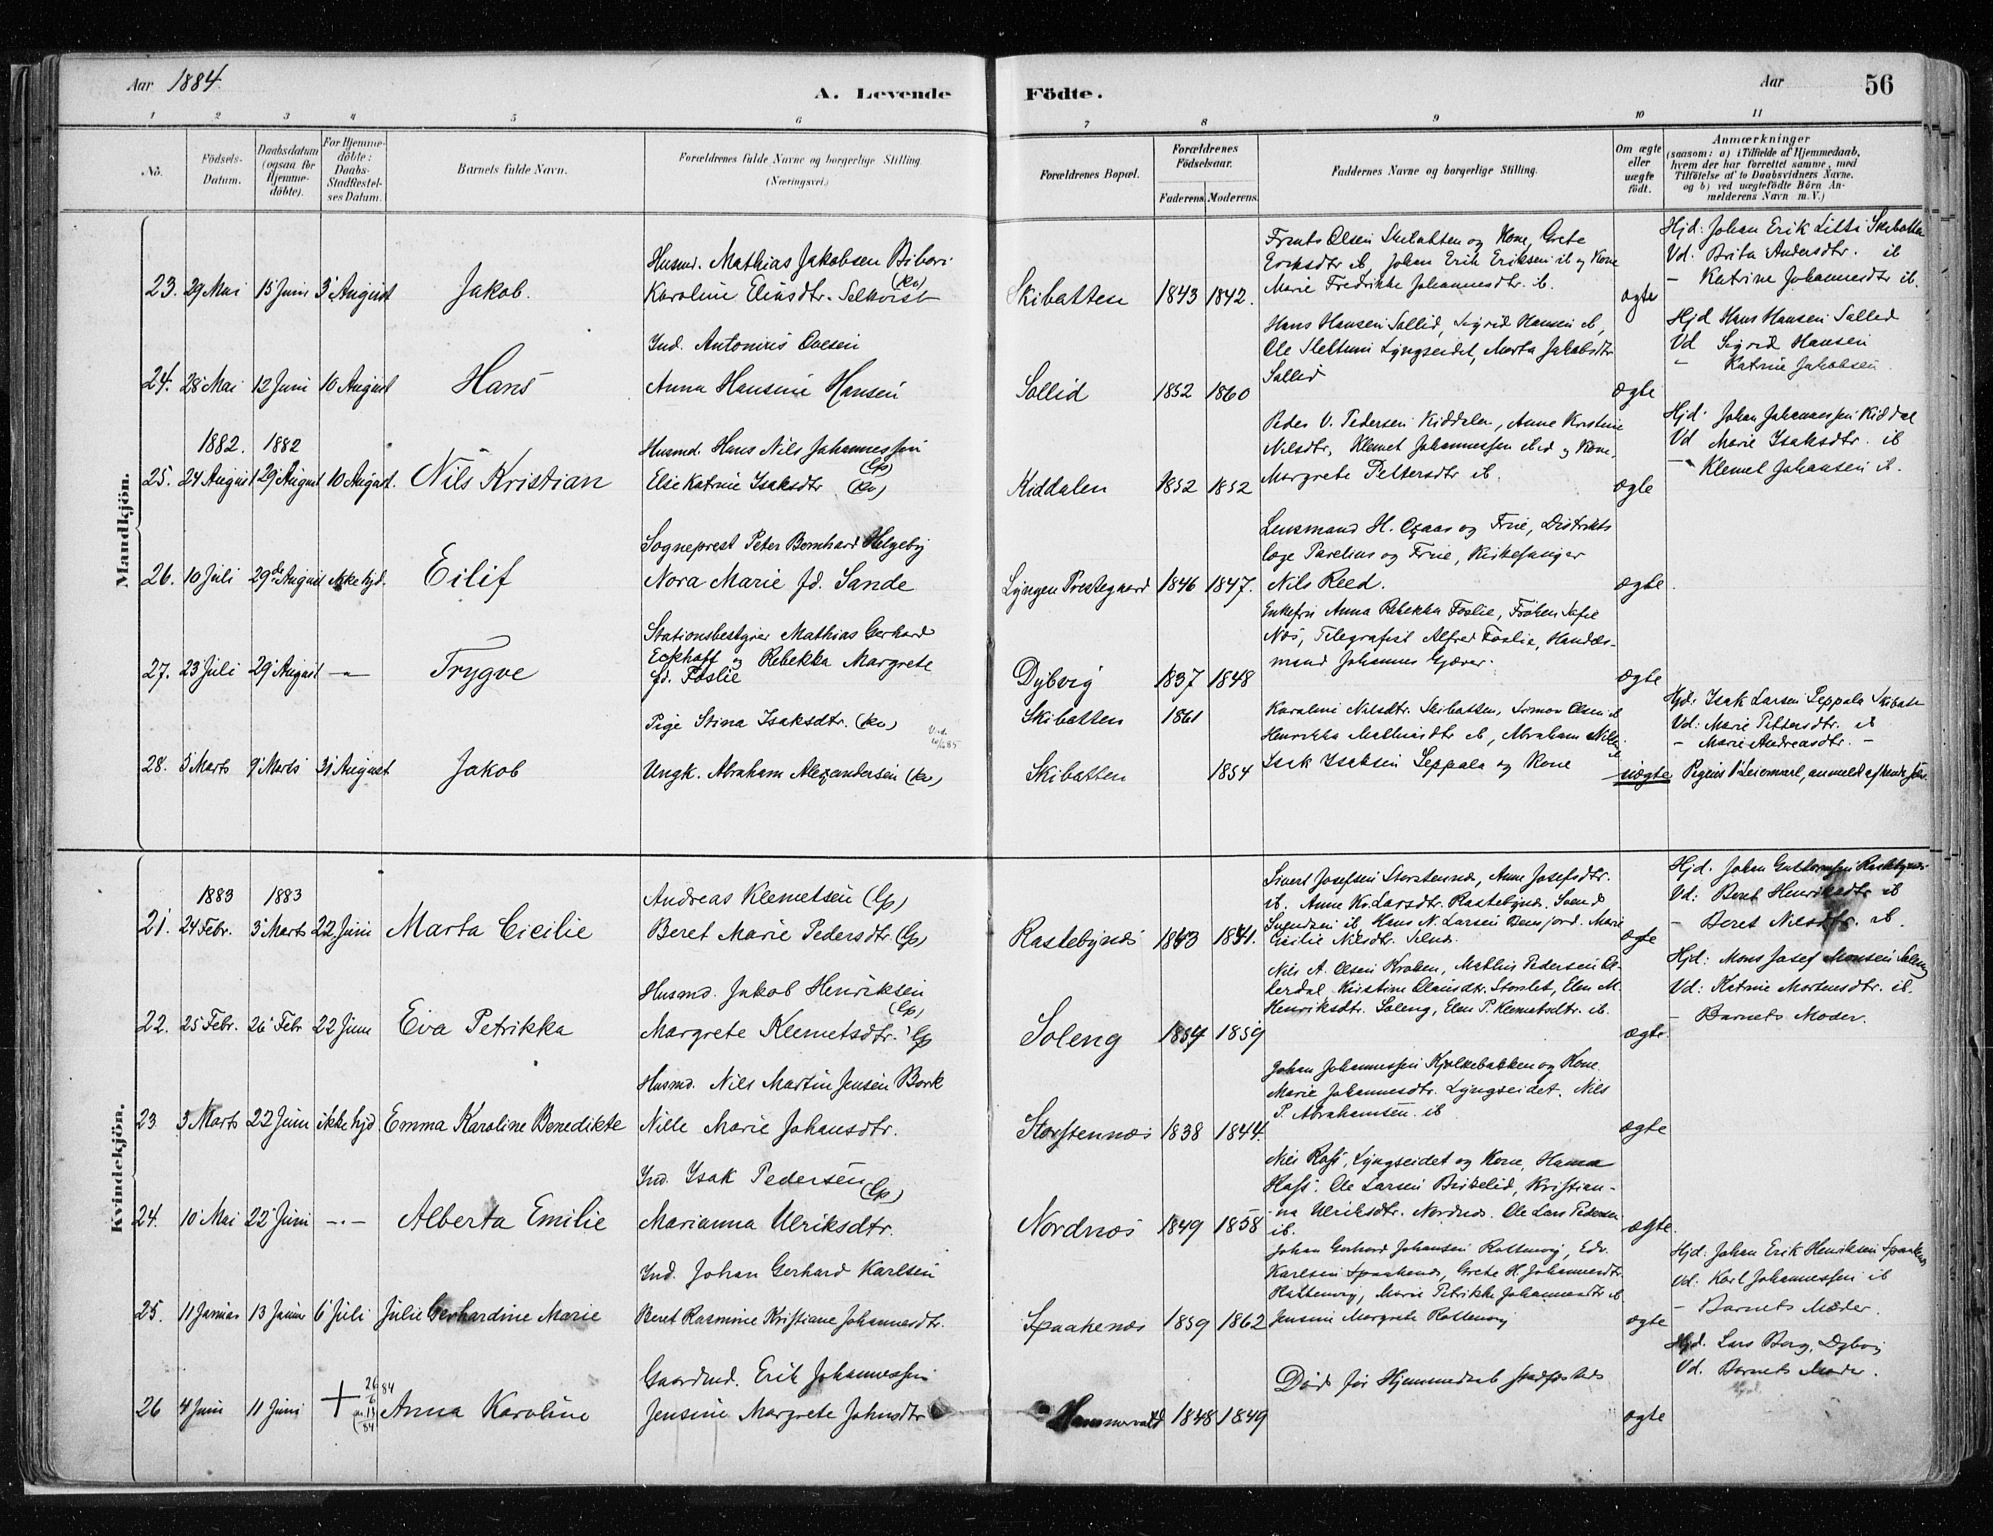 Aar 1884.
A. Levende Födte.
Aar
56
1 2 3 4 5 6 7 8 9 10 11
No.
Födsels-Datum.
Daabsdatum (ogsaa for Hjemme-döbte).
For Hjemme-döbte: Daabs-Stadfæstel-ses Datum.
Barnets fulde Navn.
Forældrenes fulde Navne og borgerlige Stilling.
(Næringsvei.)
Forældrenes Bopæl.
Forældrenes Födselsaar.
Faderens. Moderens.
Faddernes Navne og borgerlige Stilling.
Om ægte eller uægte födt.
Anmærkninger
(saasom: a) i Tilfælde af Hjemmedaab, hvem der har forrettet samme, med Tilföielse af to Daabsvidners Navne, og b) ved uægtefödte Börn An-melderens Navn m. V.)
Mandkjön.
23. 29 Mai 15 Juni 3 August Jakob.
Husmd. Mathias Jakobsen
Karoline Eliasdtr. (Kv)
Skibotten 1843 1842.
Olsen Skibotten og Kone, Grete
Eriksdtr ib, Johan Erik Eriksen ib og Kone
Marie Fredrikke Johannesdtr. ib.
ægte
Hjd: Johan Erik Skibotten
Vd: Brita Andersdtr. ib
- Katrine Johannesdtr ib.
24. 28 Mai 12 Juni 10 August Hans
Ind. Antonius Ovesen
Anna Hansine Hansen
Sollid 1852 1860
Hans Hansen Sollid, Sigrid Hansen ib,
Ole Lyngseidet, Marta Jakobsdtr
Sollid
ægte
Hjd Hans Hansen Sollid
Vd Sigrid Hansen
- Katrine Jakobsen
1882. 1882
25. 24 August 29 August 10 August. Nils Kristian
Husmd. Hans Nils Johannessen (Lp)
Elie Katrine Isaksdtr (Kv)
Kiddalen 1852 1852
Peder V. Pedersen Kiddalen, Anne Kirstine
Nilsdtr, Klemet Johannessen og Kone,
Margrete Pettersdtr ib.
ægte
Hjd: Johan Johannessen Kiddal
Vd Marie Isaksdtr. ib
- Klemet Johansen ib.
26. 10 Juli 29de August ikke hjd. Eilif
Sogneprest Peter Bernhard Helgeby
Nora Marie fd. Sande
Lyngen Prestegaard 1846 1847.
Lensmand H. og Frue, Distrikts
læge Parelius og Frue, Kirkesanger
Nils Reed.
ægte
27. 23 Juli 29 August -"- Trygve
Stationsbestyrer Mathias Gerhard
Eckhoff og Rebekka Margrete
fd. Foslie
Dybvig 1837 1848
Enkefru Anna Rebekka Foslie, Fröken
Næs, Telegrafist Alfred Foslie, Handels-
mand Johannes Gjæver.
ægte
28. 5 Marts 9 Marts 31 August Jakob
Pige Stina Isaksdtr. (Kv)
Ungk. Abraham Alexandersen (Kv)
Skibotten 1861
Skibotten 1854
Karoline Nilsdtr. Skibotten, Simon Olsen ib
Henrikka Mathisdtr ib, Abraham
Isak Isaksen Seppala og Kone
uægte
Hjd: Isak Larsen Seppala Skibotten
Vd: Marie Pettersdtr. ib
- Marie Andreasdtr. -
Kvindekjön.
1883 1883
21. 24 Febr. 3 Marts 22 Juni Marta Cicilie
Andreas Klemetsen (Lp)
Beret Marie Pedersdtr. (Lp)
Rastebynæs 1843 1841.
Sivert Josefsen Storstennæs, Anne Josefsdtr.
ib. Anne Kr. Larsdtr. Rastebynæs. Svend
Svendsen ib, Hans N. Larsen, Marie
Cicilie Nilsdtr.
ægte
Hjd: Johan Rastebynæs
Vd: Beret Henriksdtr ib
- Beret Nilsdtr. ib.
22. 25 Febr. 26 Febr 22 Juni Eva Petrikka
Husmd. Jakob Henriksen (Lp)
Margrete Klemetsdtr. Lp
Soleng 1854 1859
Nils A. Olsen Kroken, Mathis Pedersen
Kristine Storslet, Elen M.
Henriksdtr. Soleng, Elen P. Klemetsdtr. ib.
ægte.
Hjd: Mons Josef Monsen Soleng
Vd: Katrine Mortensdtr. ib.
- Barnets Moder.
23 3 Marts 22 Juni ikke hjd Emma Karoline Benedikte
Husmd. Nils Martin Jensen Bork
Nille Marie Johansdtr.
Storstennæs 1838 1844.
Johan Johannessen og Kone
Marie Johannesdtr. Lyngseidet. Nils
P. Abrahamsen. ib
ægte
24. 10 Mai 22 Juni -"- Alberta Emilie
Ind. Isak Pedersen (Lp)
Marianna Ulriksdtr.
Nordnæs 1849 1858
Lyngseidet og Kone, Hanna
Ole Larsen, Kristian-
na Ulriksdtr. Nordnæs. Ole Lars Pedersen
ib.
ægte.
25. 11 Januar 13 Januar 6 Juli Julie Gerhardine Marie
Ind. Johan Gerhard Karlsen
Beret Rasmine Kristiane Johannesdtr.
Spaakenæs 1859 1862
Johan Gerhard Johansen Rottenvig, Edv.
Karlsen Spaakenæs, Grete H. Johannesdtr.
Rottenvig, Marie Petrikke Johannesdtr ib
Jensine Margrete Rottenvig
ægte
Hjd: Johan Erik Henriksen Spaakenæs
Vd. Karl Johannessen ib
- Barnets Moder.
26 4 Juni 11 Juni + Anna Karoline
Gaardmd. Erik Johannessen
Jensine Margrete Johnsdtr
Hammervold 1848 1849
Död för Hjemmedaab stadfæstedes
ægte
Hjd. Lars Berg, Dybvig
Vd. Barnets Moder.